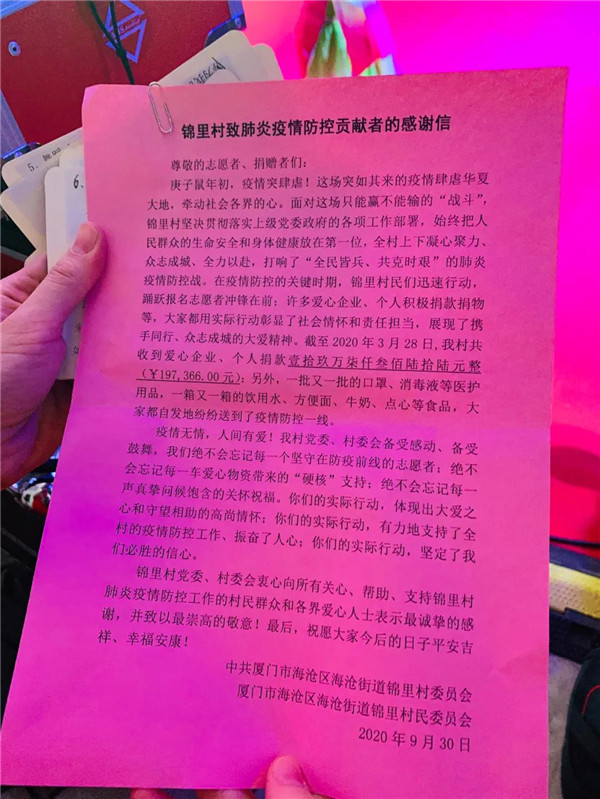 锦里村致肺炎疫情防控贡献者的感谢信
尊敬的志愿者、捐赠者们：
庚子鼠年初，疫情突肆虐！这场突如其来的疫情肆虐华夏
大地，牵动社会各界的心。面对这场只能赢不能输的“战斗”，
锦里村坚决贯彻落实上级党委政府的各项工作部署，始终把人
民群众的生命安全和身体健康放在第一位，全村上下凝心聚力、
众志成城、全力以赴，打响了“全民皆兵、共克时艰”的肺炎
疫情防控战。在疫情防控的关键时期，锦里村民们迅速行动，
踊跃报名志愿者冲锋在前；许多爱心企业、个人积极捐款捐物
等，大家都用实际行动彰显了社会情怀和责任担当，展现了携
手同行、众志成城的大爱精神。截至2020年3月28日，我村共
收到爱心企业、个人捐款壹拾玖万柒仟叁佰陆拾陆元整
（￥197,366.00元）；另外，一批又一批的口罩、消毒液等医护
用品，一箱又一箱的饮用水、方便面、牛奶、点心等食品，大
家都自发地纷纷送到了疫情防控一线。
疫情无情，人间有爱！我村党委、村委会备受感动、备受
鼓舞，我们绝不会忘记每一个坚守在防疫前线的志愿者；绝不
会忘记每一车爱心物资带来的“硬核”支持；绝不会忘记每一
声真挚问候饱含的关怀祝福。你们的实际行动，体现出大爱之
心和守望相助的高尚情怀；你们的实际行动，有力地支持了全
村的疫情防控工作、振奋了人心；你们的实际行动，坚定了我
们必胜的信心。
锦里村党委、村委会衷心向所有关心、帮助、支持锦里村
肺炎疫情防控工作的村民群众和各界爱心人士表示最诚挚的感
谢，并致以最崇高的敬意！最后，祝愿大家今后的日子平安吉
祥、幸福安康！
中共厦门市海沧区海沧街道锦里村委员会
厦门市海沧区海沧街道锦里村民委员会
2020年9月30日